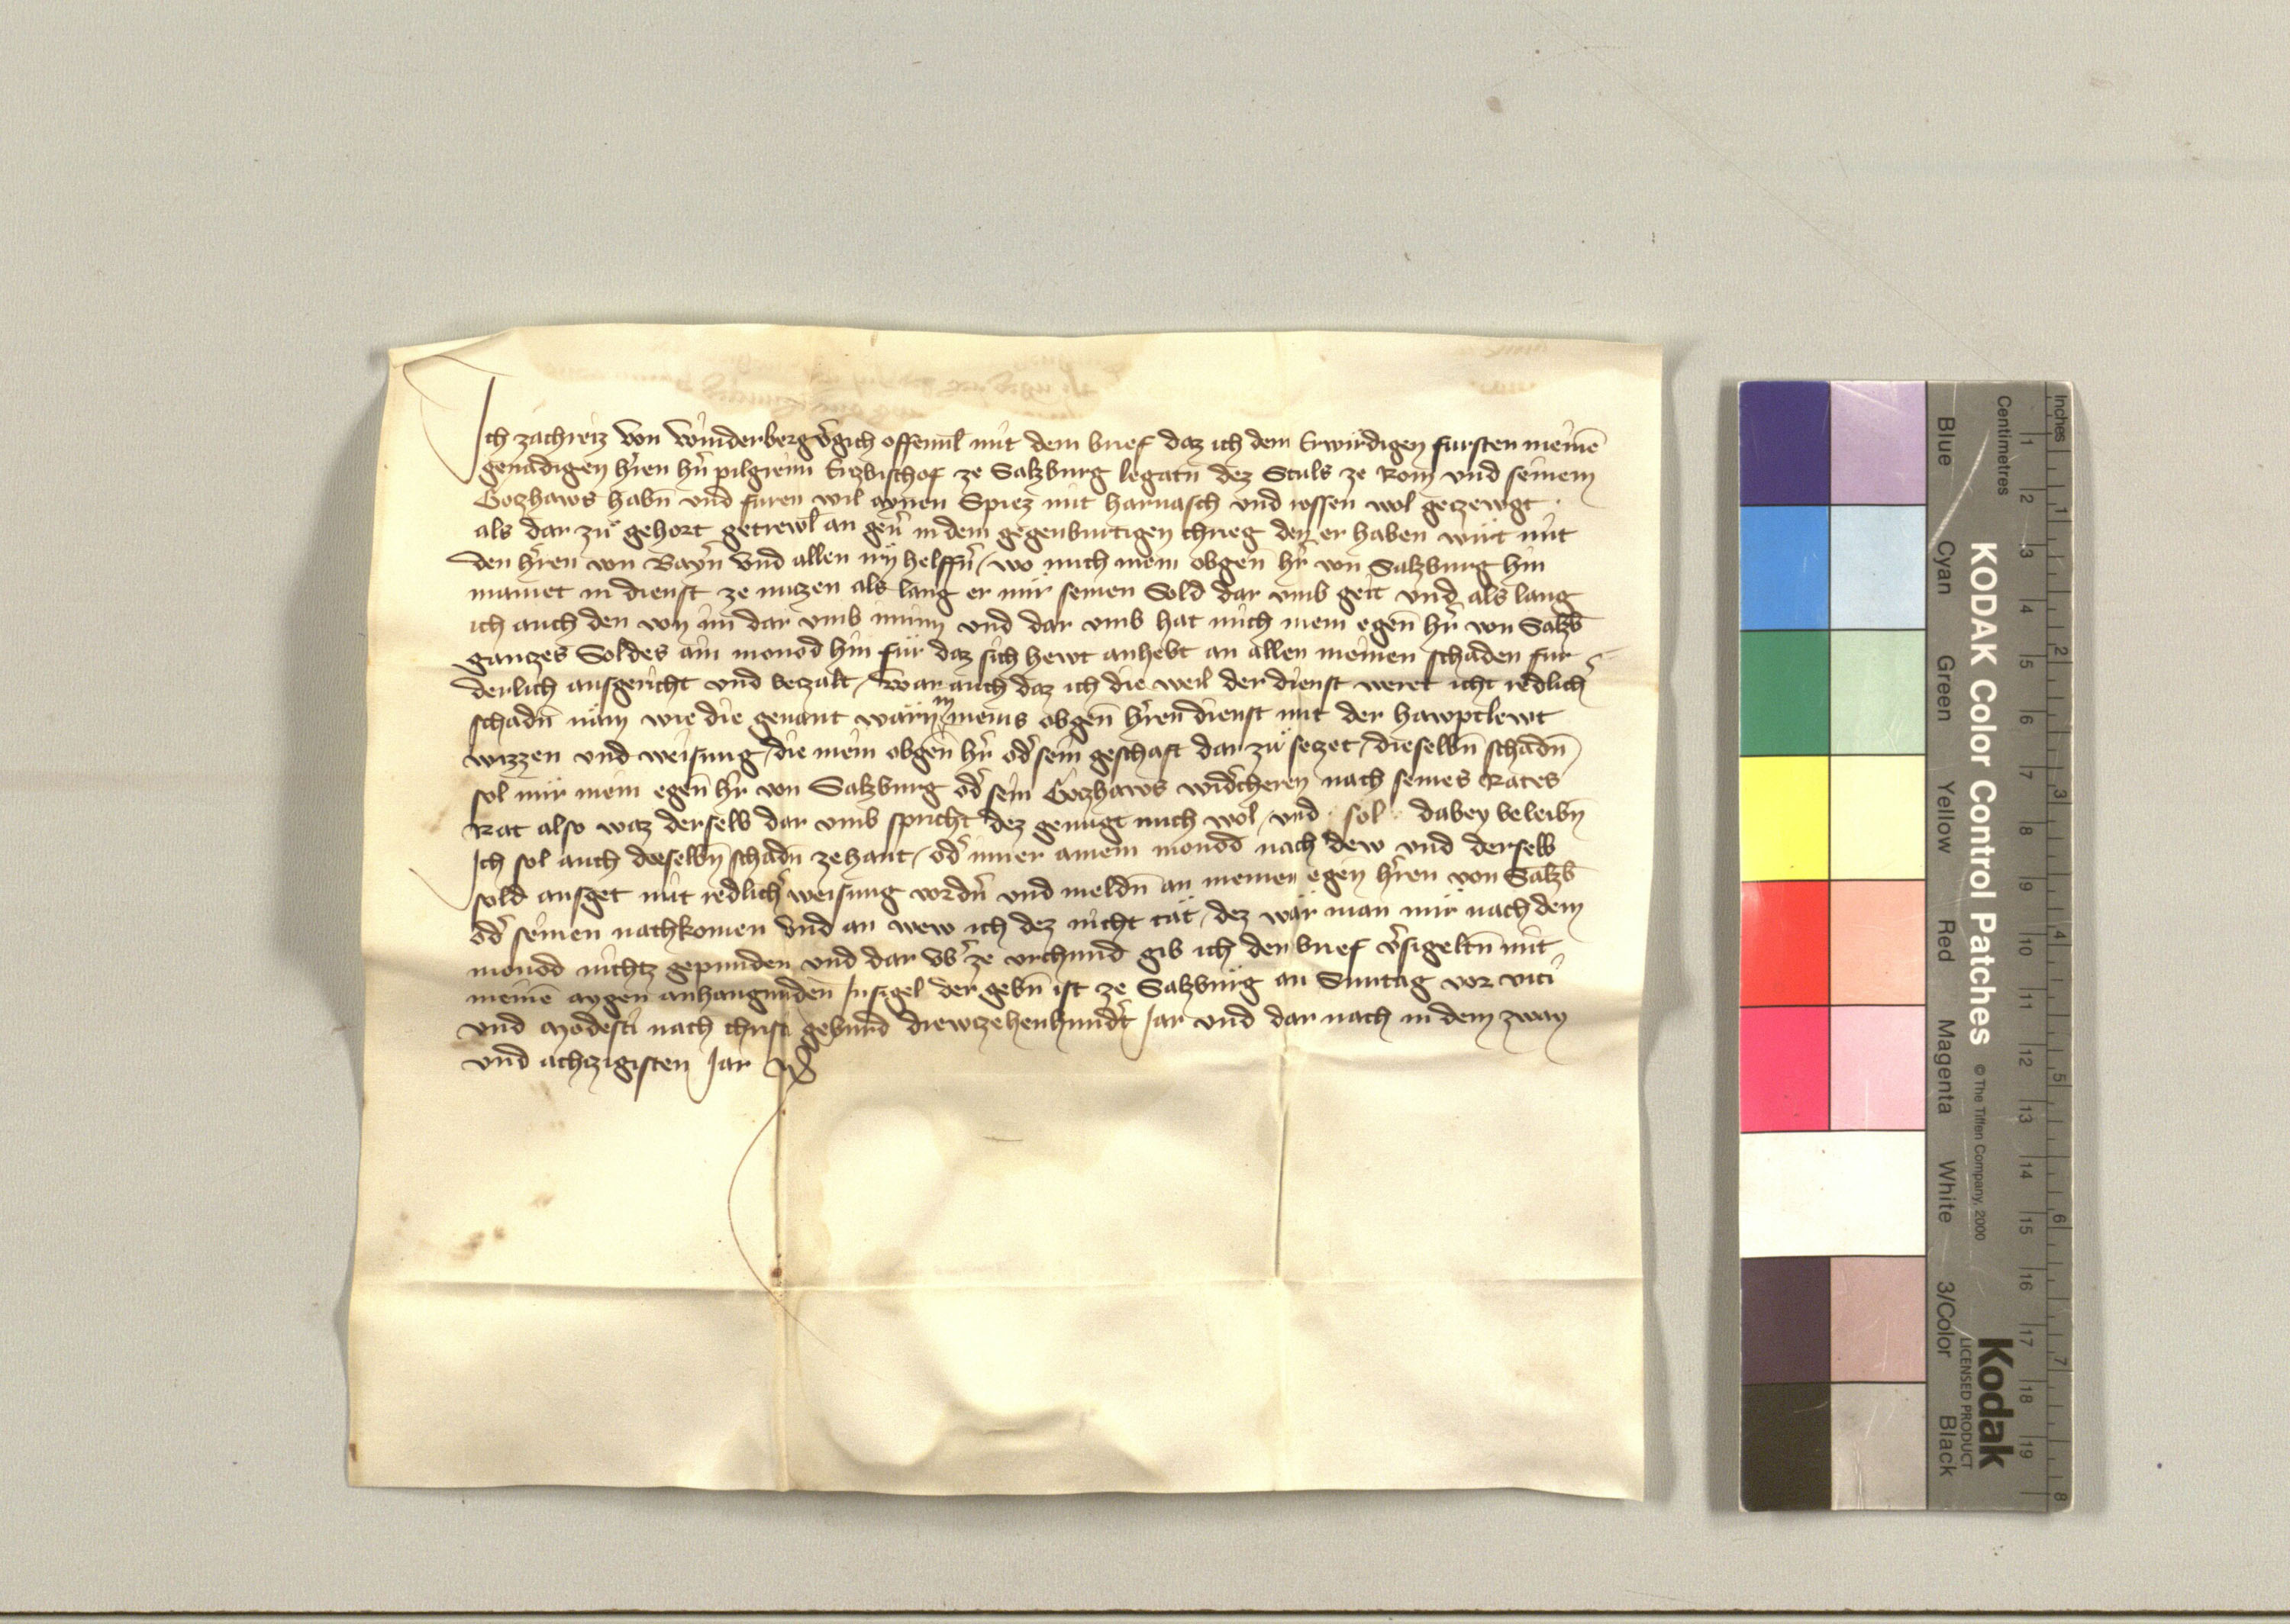 Ich zachreiz von Winderberg v̄gich offenml̄ mit dem brief daz ich dem Erwirdigen fursten meinē
genadigen hr̄en hn̄ pilgreim Erzbischof ze Salzburg legatn̄ dez Stuls ze Rom und seinem
Gozhaws habn̄ und furen wil aynen Spiez mit harnasch und rossen wol geczewgt
als dar zů gehort getrewl̄ an gen̄ in dem gegenburtigen chrieg den er haben wirt mit
den hr̄en von Bayrn̄ und allen irn helffrn̄ / wo mich mein obgen̄ hr̄ von Salzburg hin
manet in dienst ze nuczen als lang er mir seinen Sold dar vmb geit und als lang
ich auch den von im dar vmb nimm und dar vmb hat mich mein egen̄ hr̄ von Salzb̄
ganczes Soldes ain monod hin für daz sich hewt anhebt an allen meinen schaden fur
derlich ausgericht und beczalt / War auch daz ich die weil der dienst weret icht redlich̄
schadn̄ näm wie die genant wärn in meins obgen̄ hr̄en dienst mit der hawptlewt
wizzen und weisung / die mein obgen̄ hr̄ od̄ sein geschäft dar zů seczet / dieselbn̄ schadn̄
sol mir mein egen̄ hr̄ von Salzburg od̄ sein Gozhaws wid̄cheren nach seines Rates
Rat also waz derselb dar vmb spricht dez genugt mich wol / und sol dabey beleibn̄
Ich sol auch dieselbn̄ schadn̄ zehant / od̄ inner ainem monod nach dew und derselb
sold ausget mit redlich̄ weisung vordn̄ und meldn̄ an meinen egen̄ hr̄en von Salzb̄
od̄ seinen nachkomen Und an wew ich dez nicht tät / dez wär man mir nach dem
monod nichtz gepunden und dar vb̄ ze vrchund gib ich den brief v̄sigeltn̄ mit
meinē aygen anhangunden Insigel der gebn̄ ist ze Salzburg an Suntag vor viti
und Modesti nach christi geburd drewczehenhundr̄t Jar und dar nach in dem zway
und achzigisten Jar
KODAK Color Control Patches
© The Tiffen Company, 2000
Kodak
LICENSED PRODUCT
Inches
1 2 3 4 5 6 7 8
Centimetres
1 2 3 4 5 6 7 8 9 10 11 12 13 14 15 16 17 18 19
Blue Cyan Green Yellow Red Magenta White 3/Color Black